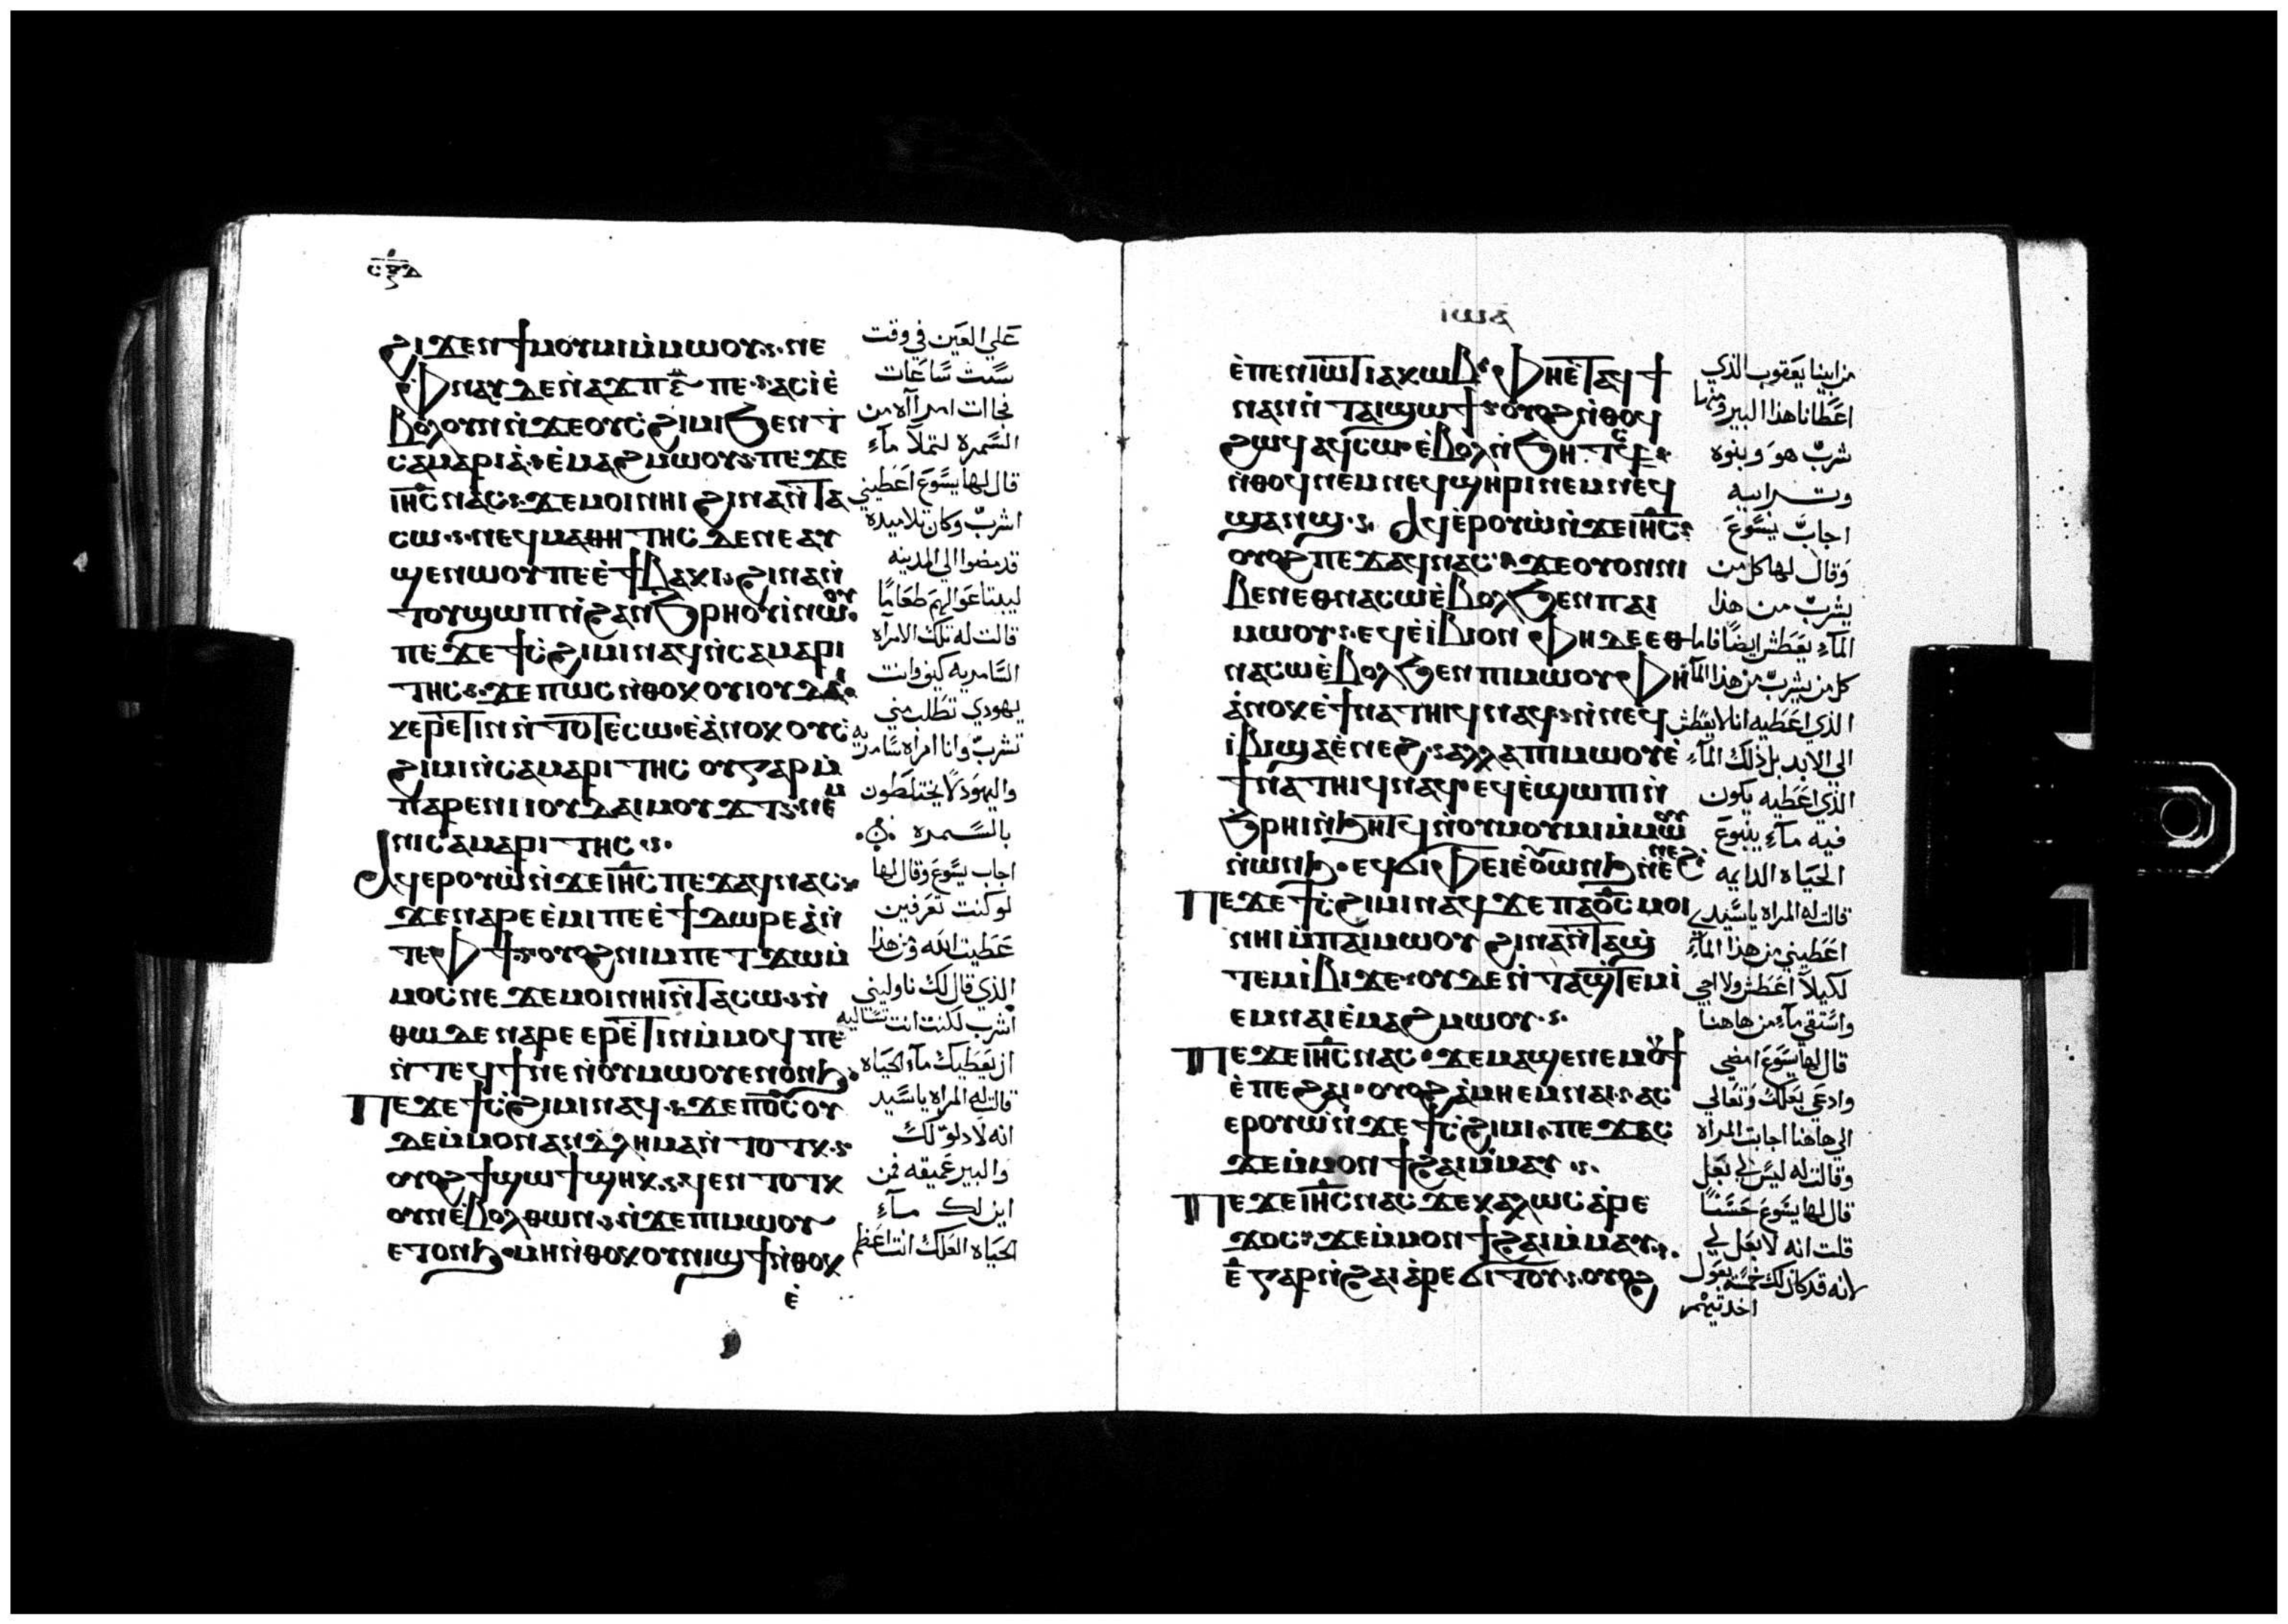 ⲥⲝⲇ
ϩⲓϫⲉⲛϯⲙⲟⲩⲙⲓⲙ̀ⲙⲱⲟⲩ·ⲛⲉ
ⲫⲛⲁⲩⲇⲉⲛ̀ⲁϫⲡ ⲋ̅ ⲡⲉ·ⲁⲥⲓ̀ⲉ̀
ⲃⲟⲗⲟⲩⲛⲛ̀ϫⲉⲟⲩⲥ̀ϩⲓⲙⲓϧⲉⲛⲧ̀
ⲥⲁⲙⲁⲣⲓⲁ̀·ⲉ̀ⲙⲁϩⲙⲱⲟⲩ·ⲡⲉϫⲉ
ⲓⲏ̅ⲥ̅ⲛⲁⲥ·ϫⲉⲙⲟⲓⲛⲏⲓϩⲓⲛⲁⲛ̀ⲧⲁ
ⲥⲱ·ⲛⲉϥⲙⲁⲑⲏⲧⲏⲥ ⲇⲉⲛⲉⲁⲩ
ϣⲉⲛⲱⲟⲩⲡⲉⲉ̀ϯⲃⲁⲕⲓ·ϩⲓⲛⲁⲛ̀
ⲧⲟⲩϣⲱⲡⲛ̀ϩⲁⲛϧⲣⲏⲟⲩⲓ̀ⲛⲱⲟⲩ
ⲡⲉϫⲉϯⲥ̀ϩⲓⲙⲓⲛⲁϥⲛ̀ⲥⲁⲙⲁⲣⲓ
ⲧⲏⲥ·ϫⲉⲡⲱⲥⲛ̀ⲑⲟⲕⲟⲩⲓⲟⲩⲇⲁⲓ
ⲕⲉⲣⲉ̀ⲧⲓⲛⲛ̀ⲧⲟⲧⲉⲥⲱ·ⲉ̀ⲁⲛⲟⲕⲟⲩⲥ̀
ϩⲓⲙⲓⲛ̀ⲥⲁⲙⲁⲣⲓⲧⲏⲥ ⲟⲩⲅⲁⲣⲙ̀
ⲡⲁⲣⲉⲛⲓⲓⲟⲩⲇⲁⲓⲙⲟⲩϫⲧ·ⲛⲉⲙ
ⲛⲓⲥⲁⲙⲁⲣⲓⲧⲏⲥ·
ⲁϥⲉⲣⲟⲩⲱ̀ⲛ̀ϫⲉⲓⲏ̅ⲥ̅ⲡⲉϫⲁϥⲛⲁⲥ·
ϫⲉⲛⲁⲣⲉⲉ̀ⲙⲓⲡⲉⲉ̀ϯⲇⲱⲣⲉⲁ̀ⲛ̀
ⲧⲉⲫϯ·ⲟⲩⲟϩⲛⲓⲙⲡⲉⲧϫⲱⲙ̀
ⲙⲟⲥⲛⲉ ϫⲉⲙⲟⲓⲛⲏⲓⲛ̀ⲧⲁⲥⲱ·ⲛ̀
ⲑⲱⲇⲉⲛⲁⲣⲉⲉⲣⲉ̀ⲧⲓⲛⲙ̀ⲙⲟϥⲡⲉ
ⲛ̀ⲧⲉϥϯⲛⲉⲛ̀ⲟⲩⲙⲱⲟⲩⲉⲛⲟⲛϧ·
ⲡⲉϫⲉϯⲥ̀ϩⲓⲙⲓⲛⲁϥ·ϫⲉⲡⲟ̅ⲥ̅ⲟⲩ
ⲇⲉⲙ̀ⲙⲟⲛⲁⲛⲧ̀ⲗⲏⲙⲁⲛ̀ⲧⲟⲧⲕ·
ⲟⲩⲟϩϯϣⲱϯϣⲏⲕ·ⲁϥⲉⲛⲧⲟⲧⲕ
ⲟⲩⲛⲉ̀ⲃⲟⲗⲑⲱⲛ·ⲛ̀ϫⲉⲡⲓⲙⲱⲟⲩ
ⲉⲧⲟⲛϧ·ⲙⲏⲛ̀ⲑⲟⲕⲟⲩⲛⲓϣϯⲛ̀ⲑⲟⲕ
ⲉ̀
علي العين في وقت
ست ساعات
فجاات امراآه من
السمره لتملا مآء
قال لها يسوع اعطيني
اشرب وكان تلاميده
قد مضوا الي المدينه
ليبتاعوا لهم طعامًا
قالت له تلك الامرآه
السامريه كيف وانت
يهودي تطلب مني
تشرب وانا امراه سامريه
واليهود لا يختلطون
بالسمره
اجاب يسوع وقال لها
لو كنت تعرفين
عطيت الله ومن هذا
الذي قال لك ناوليني
اشرب لكنت انت تساليه
ان يعطيك مآء الحياه
قالت له المراه ياسيد
انه لا دلو لك
والبير عميقه فمن
اين لك مآء
الحياه العلك انت اعظم
ⲉ̀ⲡⲉⲛⲓⲱ̀ⲧⲓⲁⲕⲱⲃ·ⲫⲏⲉ̀ⲧⲁϥϯ
ⲛⲁⲛⲛ̀ⲧⲁⲓϣⲱϯ·ⲟⲩⲟϩⲛ̀ⲑⲟϥ
ϩⲱϥⲁϥⲥⲱⲉ̀ⲃⲟⲗⲛ̀ϧⲏⲧⲥ̀·
ⲛ̀ⲑⲟϥⲛⲉⲙⲛⲉϥϣⲏⲣⲓⲛⲉⲙⲛⲉϥ
ϣⲁⲛϣ· ⲁϥⲉⲣⲟⲩⲱ̀ⲛ̀ϫⲉⲓⲏ̅ⲥ̅·
ⲟⲩⲟϩⲡⲉϫⲁϥⲛⲁⲥ·ϫⲉⲟⲩⲟⲛⲛⲓ
ⲃⲉⲛⲉⲑⲛⲁⲥⲱⲉ̀ⲃⲟⲗϧⲉⲛⲡⲁⲓ
ⲙⲱⲟⲩ·ⲉϥⲉ̀ⲓⲃⲓⲟⲛ ⲫⲏⲇⲉⲉⲑ
ⲛⲁⲥⲱⲉ̀ⲃⲟⲗϧⲉⲛⲡⲓⲙⲱⲟⲩⲫⲏ
ⲁ̀ⲛⲟⲕⲉ̀ϯⲛⲁⲧⲏⲓϥⲛⲁϥ·ⲛ̀ⲛⲉϥ
ⲓ̀ⲃⲓϣⲁⲉ̀ⲛⲉϩ·ⲁⲗⲗⲁⲡⲓⲙⲱⲟⲩⲉ̀
ϯⲛⲁⲧⲏⲓϥⲛⲁϥⲉϥⲉ̀ϣⲱⲡⲓⲛ̀
ϧⲣⲏⲓⲛ̀ϧⲏⲧϥⲛ̀ⲟⲩⲙⲟⲩⲙⲓⲙ̀ⲙⲱⲟⲩ
ⲛ̀ⲱⲛϧ·ⲉϥϭⲓⲫⲉⲓⲉ̀ⲟⲩⲱⲛϧⲛ̀ⲉⲛⲉϩ·
ⲡⲉϫⲉϯⲥ̀ϩⲓⲙⲓⲛⲁϥϫⲉⲡⲁⲟ̅ⲥ̅ⲙⲟⲓ
ⲛⲏⲓⲙ̀ⲡⲁⲓⲙⲱⲟⲩ ϩⲓⲛⲁⲛ̀ⲧⲁϣ̀
ⲧⲉⲙⲓ̀ⲃⲓϫⲉ·ⲟⲩⲇⲉⲛ̀ⲧⲁϣ̀ⲧⲉⲙⲓ̀
ⲉⲙⲛⲁⲓⲉ̀ⲙⲁϩⲙⲱⲟⲩ·
ⲡⲉϫⲉⲓⲏ̅ⲥ̅ⲛⲁⲥ·ϫⲉⲙⲁϣⲉⲛⲉⲙⲟⲩϯ
ⲉ̀ⲡⲉϩⲁⲓ·ⲟⲩⲟϩⲁ̀ⲙⲏⲉⲙⲛⲁⲓ·ⲁⲥ
ⲉⲣⲟⲩⲱ̀ⲛ̀ϫⲉϯⲥ̀ϩⲓⲙⲓ·ⲡⲉϫⲁⲥ
ϫⲉⲙ̀ⲙⲟⲛϯϩⲁⲓⲙ̀ⲙⲁⲩ·
ⲡⲉϫⲉⲓⲏ̅ⲥ̅ⲛⲁⲥ ϫⲉⲕⲁⲗⲱⲥⲁ̀ⲣⲉ
ϫⲟⲥ·ϫⲉⲙ̀ⲙⲟⲛϯϩⲁⲓⲙ̀ⲙⲁⲩ·
ⲉ̅ ⲅⲁⲣⲛ̀ϩⲁⲓⲁ̀ⲣⲉϭⲓⲧⲟⲩ·ⲟⲩⲟϩ
من ابينا يعقوب الذي
اعطانا هذا البير ومنها
شرب هو وبنوه
اجاب يسوع
وقال لها كل من
يشرب من هذا
المآء يعطش ايضًا فاما
كل من يشرب من هذا المآ
الذي اعطيه انا لا يعطش
الي الابد بل ذلك المآء
الذي اعطيه يكون
فيه مآء ينبوع
الحياه الدايمه
قالت له المراه ياسيدي
اعطيني من هذا المآء
لكيلا اعطش ولا اجي
واستقي مآء من هاهنا
قال لها يسوع امضي
وادعي بعلك وتعالي
الي هاهنا اجابت المراه
وقالت له ليس لي بعل
قال لها يسوع حسنًا
قلت انه لا بعل لي
لانه قد كان لك خمسة بعول
اخدتيهم